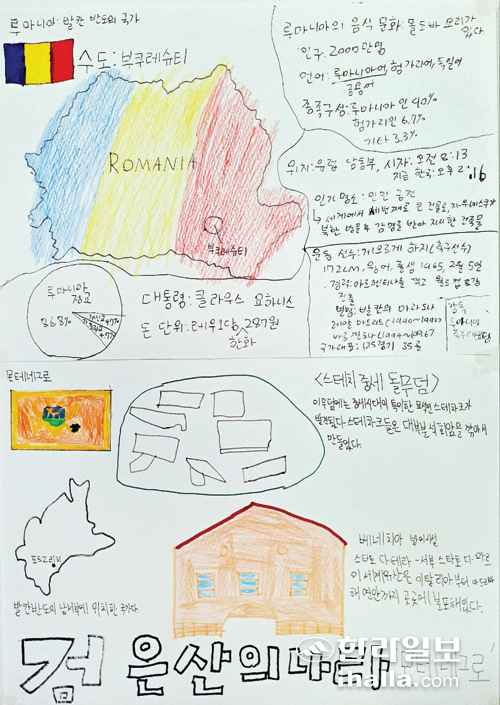 루마니아: 발칸 반도의 국가
수도: 부쿠레슈티
ROMANIA
부쿠레슈티
루마니아의 음식 문화: 몰도바 요리가
있다
인구: 2000만명
언어: 루마니아어, 헝가리어, 독일어
공용어
종족구성: 루마니아인 90%
헝가리인 6.7%
기타 3.3%
위치: 유럽 남동부, 시차: 오전 8:13
지금 한국: 오후 2:16
인기 명소: 인민 궁전
세계에서 세번째로 큰 건물로,
북한 방문후 감명을 받아 지시한 건축물
운동 선수: 게오르게 하지(축구선수)
172cm, 출생 1965, 2월 5일
경력: 아르헨티나를 꺾고 월드컵 8강
진출
별명: 발칸의 마라도나
레알 마드리드(1990~1992)
국가대표: 125경기 35골
감독
루마니아
루마니아
종교
86.8%
대통령: 클라우스 요하니스
돈 단위: 레우 1당, 287원
한화
몬테네그로
<스테치 중세 돌무덤>
이무덤에는 중세시대의 특이한 묘석인 스테차크가
발견됩니다 스테차크들은 대부분 석회암을 깎아서
만들었다.
포드고리차
발칸반도의 남서부에 위치한 국가다
베네치아 방어시설
스타토 다 테라-서부 스타토 다 마르
이 세계유산은 이탈리아부터 아드리아
해 연안까지 곳곳에 분포해있다.
검은산의 나라 몬테네그로
한라일보
ihalla.com